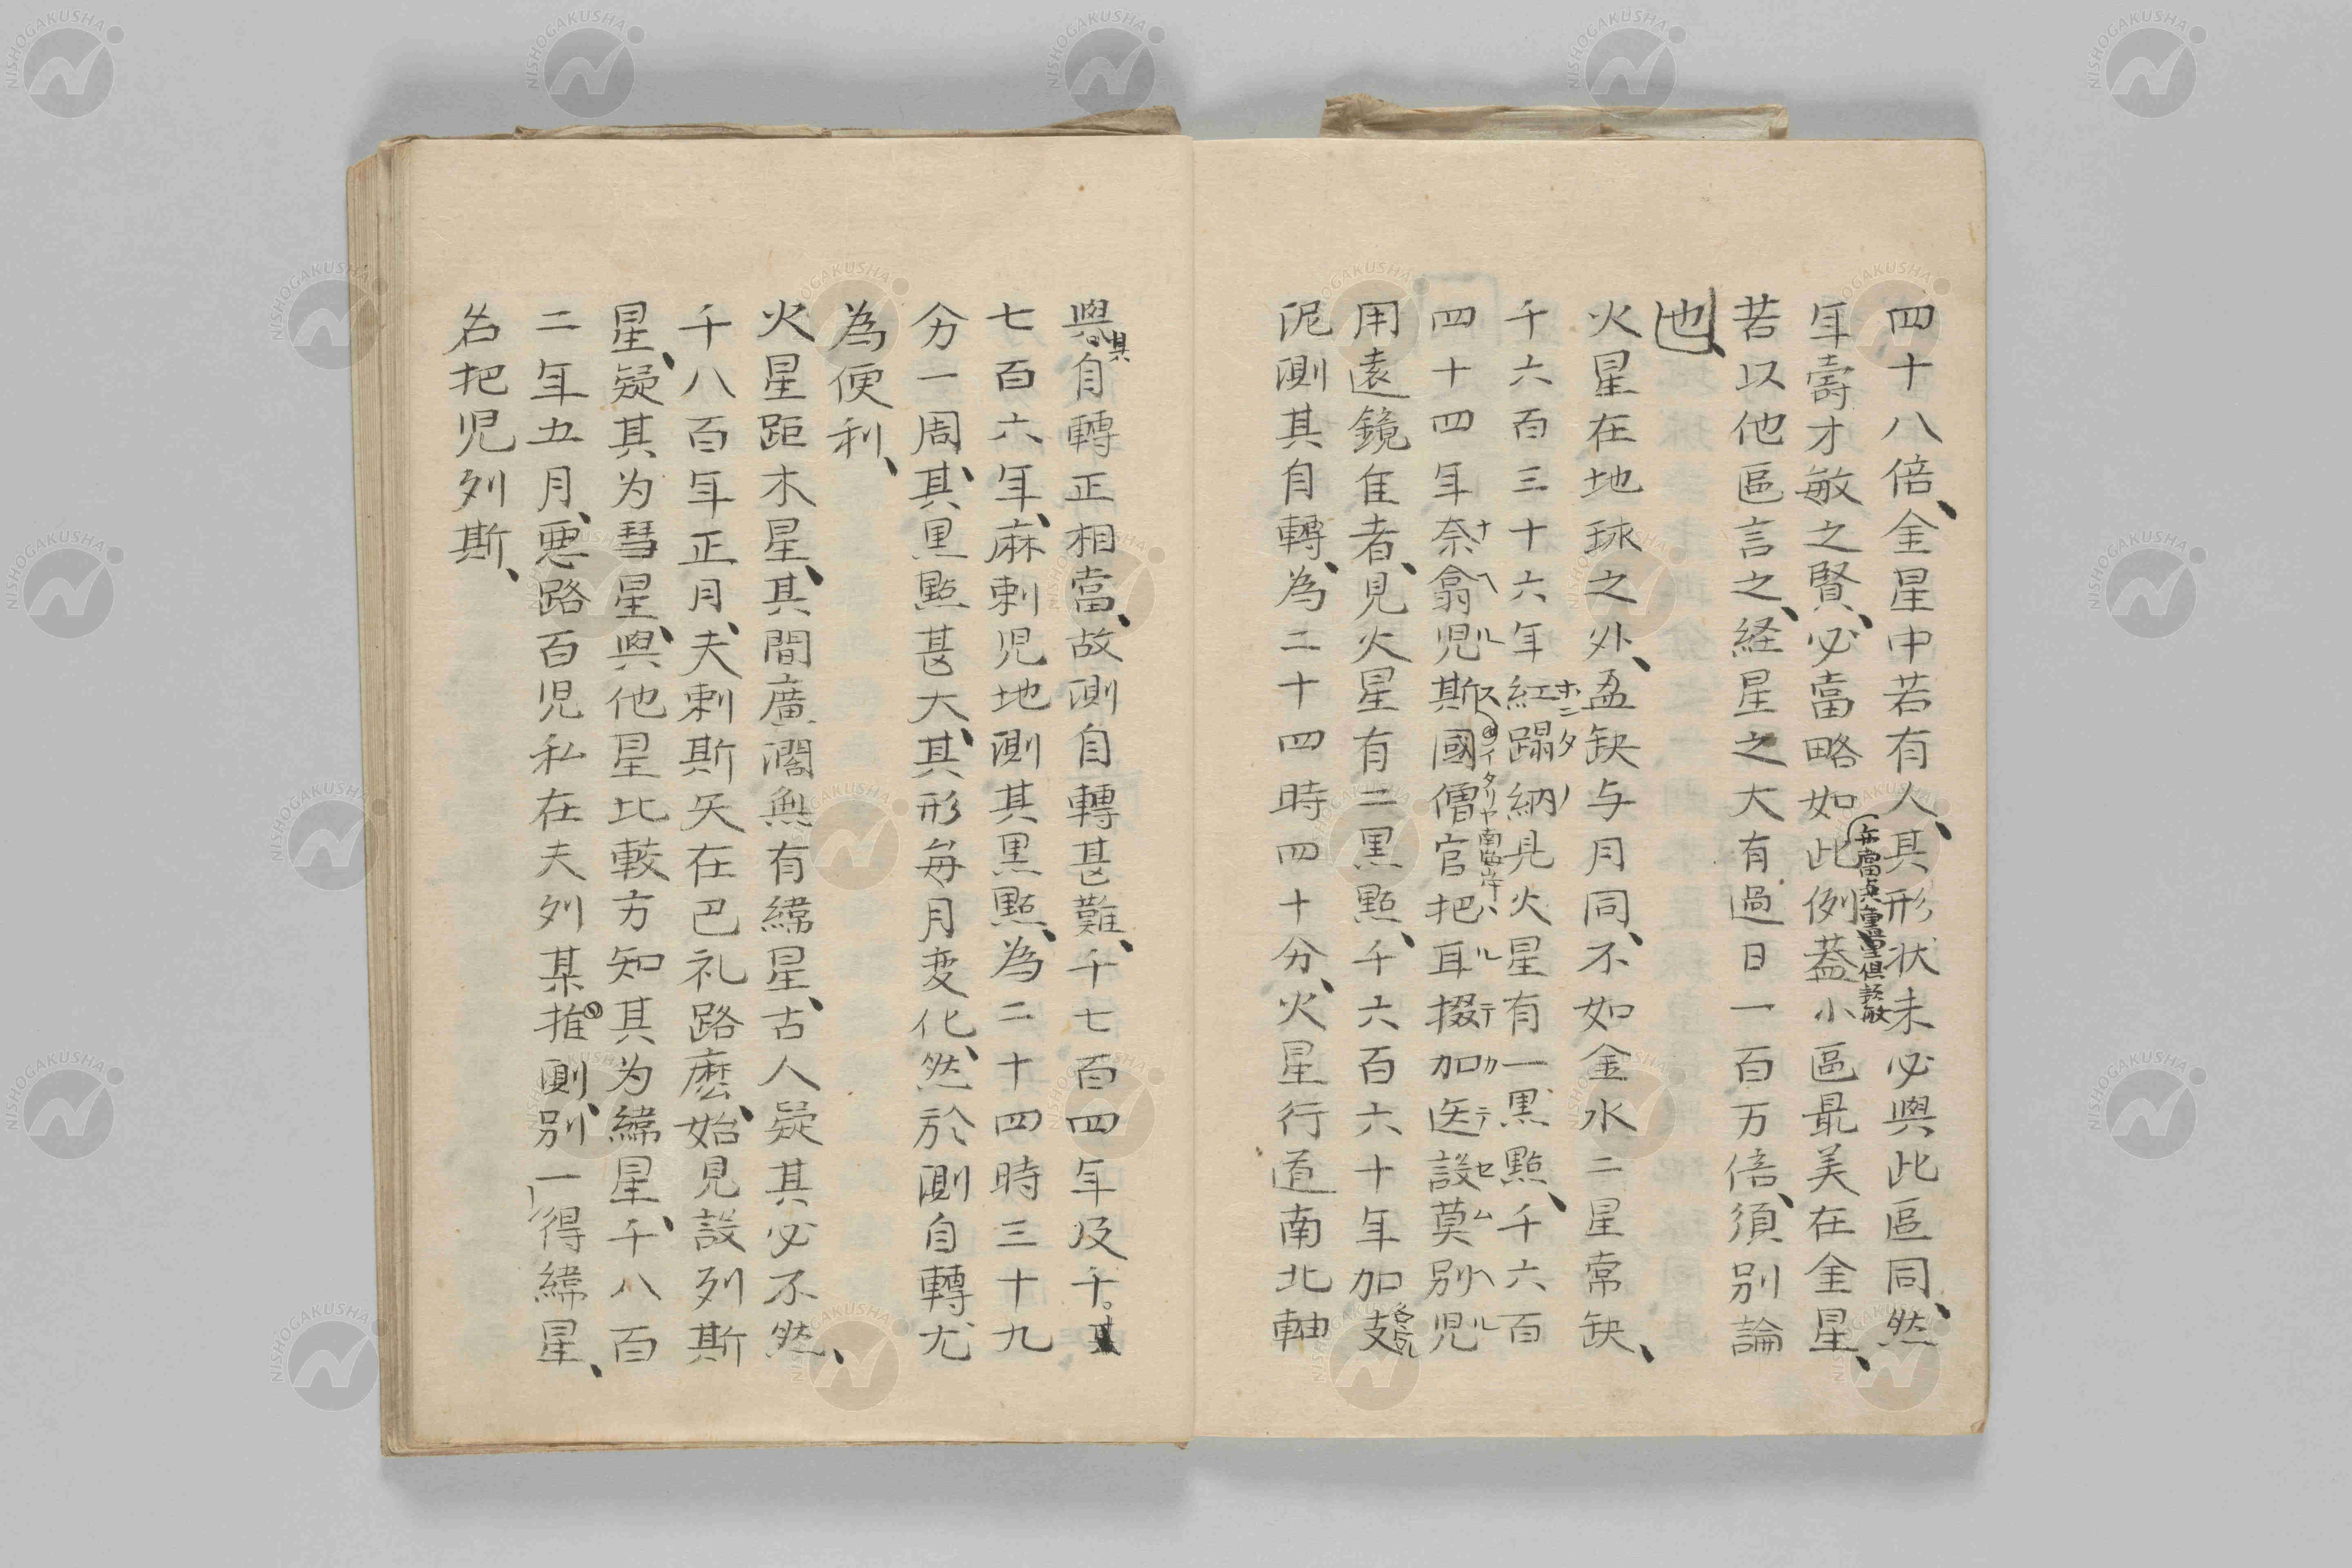 四十八倍、金星中若有人、其形状未必與此區同、然
年壽才敏之賢、必當略如此例蓋小區最美在金星、
若以他區言之、経星之大有過日一百万倍、須別論
也、
火星在地球之外、盈缺与月同、不如金水二星常缺、
千六百三十六年紅蹋納見火星有一黒點、千六百
ホンタノ
四十四年奈翕児斯國僧官把耳掇加医設莫別児
ナヘルス イタリヤ南海岸 ハルテカテセムヘル
用遠鏡隹者、見火星有二黒點、千六百六十年加支
泥測其自轉、為二十四時四十分、火星行道南北軸
與其自轉正相當、故測自轉甚難、千七百四年及千
七百六年、麻剌児地測其黒點、為二十四時三十九
分一周、其黒點甚大、其形毎月变化、然於測自轉尤
為便利、
火星距木星、其間廣濶無有緯星、古人疑其必不然、
千八百年正月、夫剌斯矢在巴礼路麽、始見設列斯
星、疑其为彗星、與他星比較方知其为緯星、千八百
二年五月、悪路百児私在夫列某推測、別一得緯星、
名把児列斯、